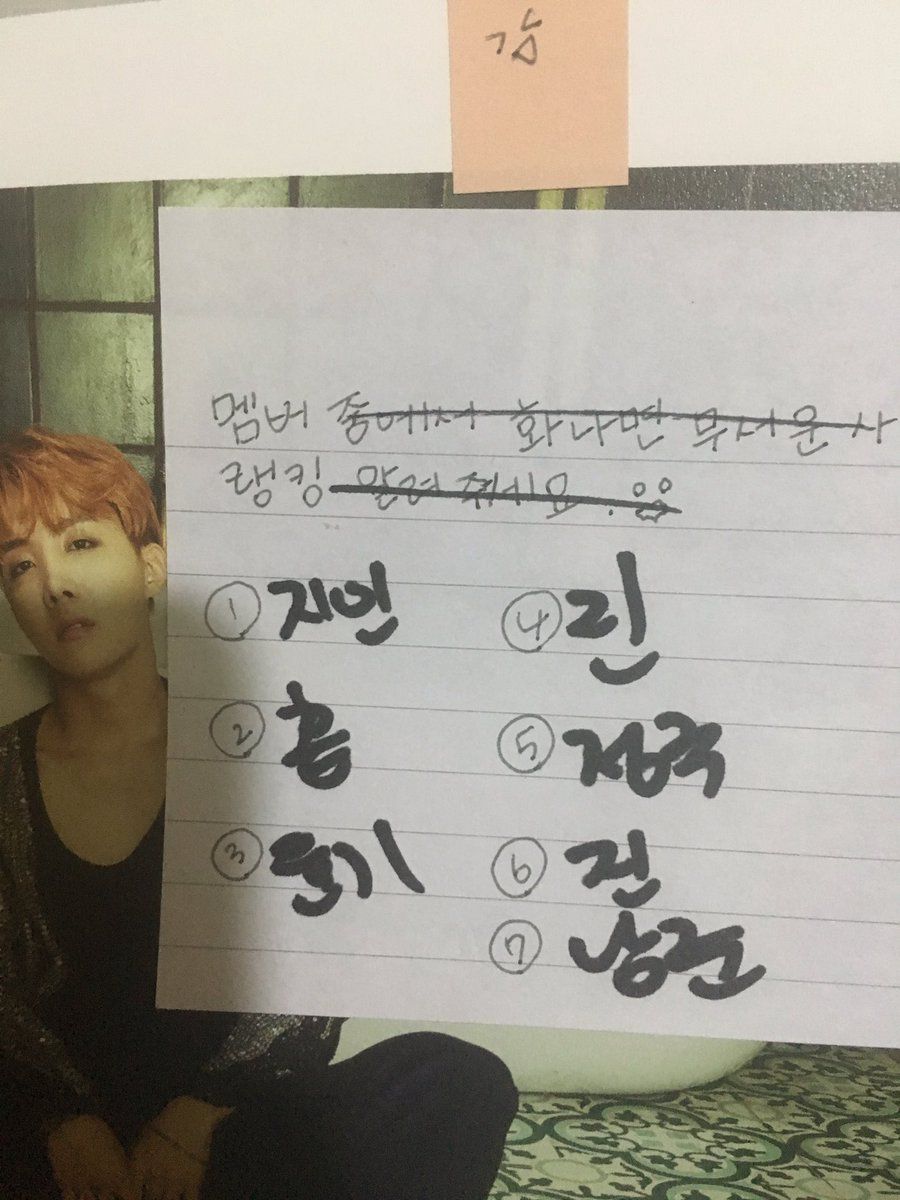 감
멤버 중에서 화나면 무서운 사
랭킹 알려 줘세요.
① 지민
② 홉
③ 윤기
④
⑤ 정국
⑥ 진
⑦ 남준